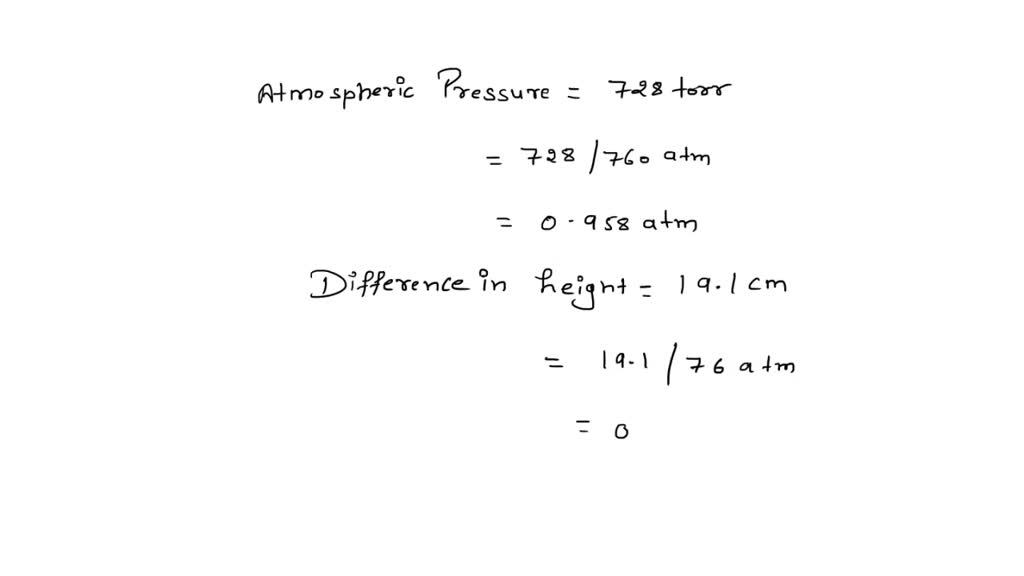 Atmospheric Pressure = 728 torr
= 728/760 atm
= 0.958 atm
Difference in height = 19.1 cm
= 19.1/76 atm
= 0